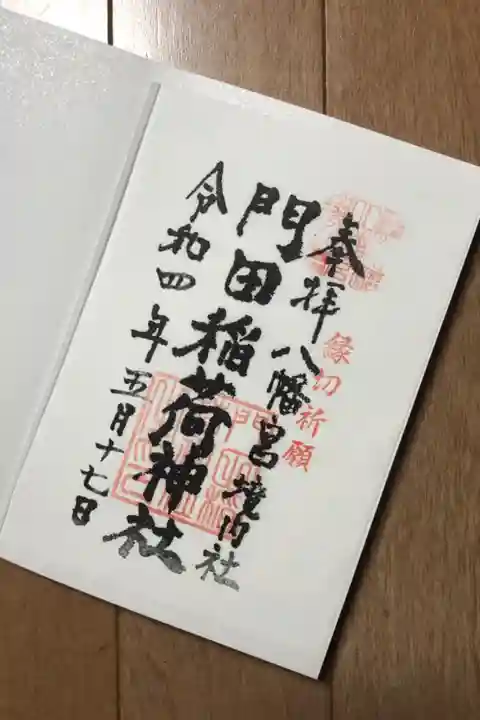 縁切祈願
奉拝 八幡宮境内社
門田稲荷神社
令和四年五月十七日